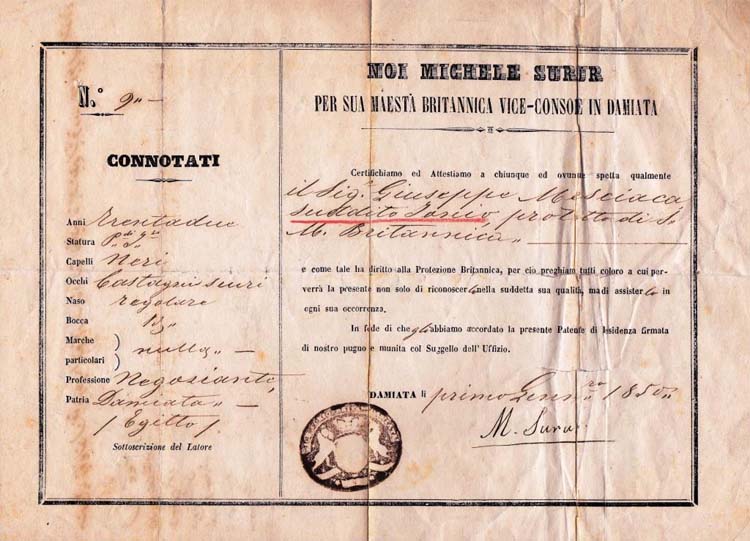 N.° 9
CONNOTATI
Anni Trentadue
Statura
Capelli Neri
Occhi Castagni scuri
Naso regolare
Bocca
Marche
particolari nulla
Professione Negoziante
Patria Damiata
/ Egitto /
Sottoscrizione del Latore
NOI MICHELE SURUR
PER SUA MAESTÀ BRITANNICA VICE-CONSOE IN DAMIATA
Certifichiamo ed Attestiamo a chiunque ed ovunque spetta qualmente
il Sig.r Giuseppe Mesciaca
suddito Ionio, protetto di S.
M. Britannica
e come tale ha diritto alla Protezione Britannica, per cio preghiam tutti coloro a cui per-
verrà la presente non solo di riconoscerlo nella suddetta sua qualità, ma di assisterlo in
ogni sua occorrenza.
In fede di che gli abbiamo accordato la presente Patente di Residenza firmata
di nostro pugno e munita col Suggello dell' Uffizio.
DAMIATA li primo Genn.ro 1850
M. Surur